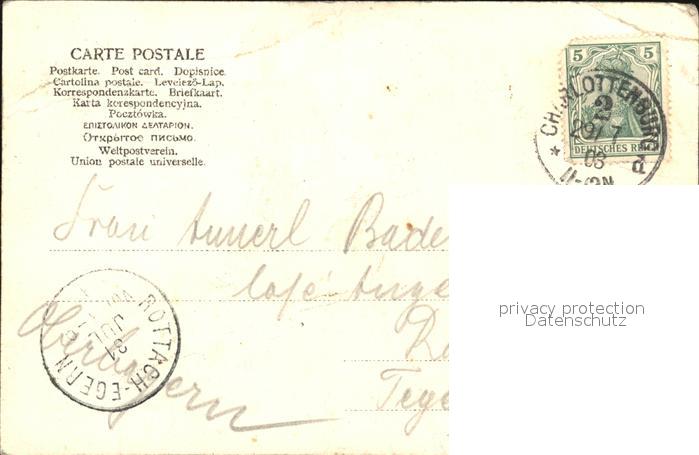 CARTE POSTALE
Postkarte. Post card. Dopisnice.
Cartolina postale. Levelező-Lap.
Korrespondenzkarte. Briefkaart.
Karta korespondencyjna.
Pocztówka.
ΕΠΙΣΤΟΛΙΚΟΝ ΔΕΛΤΑΡΙΟΝ.
Открытое письмо.
Weltpostverein.
Union postale universelle.
5 5
DEUTSCHES REICH
* CHARLOTTENBURG
2
29/7
03
11-12N
Frau Annerl Bade
privacy protection
Datenschutz
Tege
Oberbayern
ROTTACH-EGERN
31
JUL